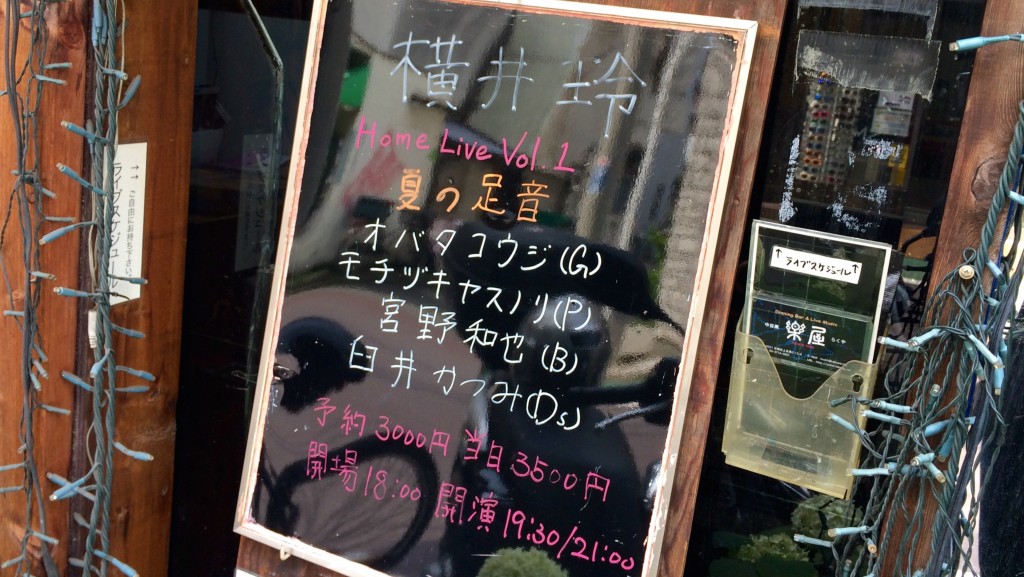 横井 玲
Home Live Vol.1
夏の足音
オバタコウジ(G)
モチヅキヤスノリ(P)
宮野和也(B)
臼井かつみ(Ds)
予約3000円 当日3500円
開場18:00 開演19:30/21:00
↑↑ご自由にお持ち下さい。
ライブスケジュール
↑ライブスケジュール↑
Dining Bar & Live Music
中目黒 樂屋 らくや